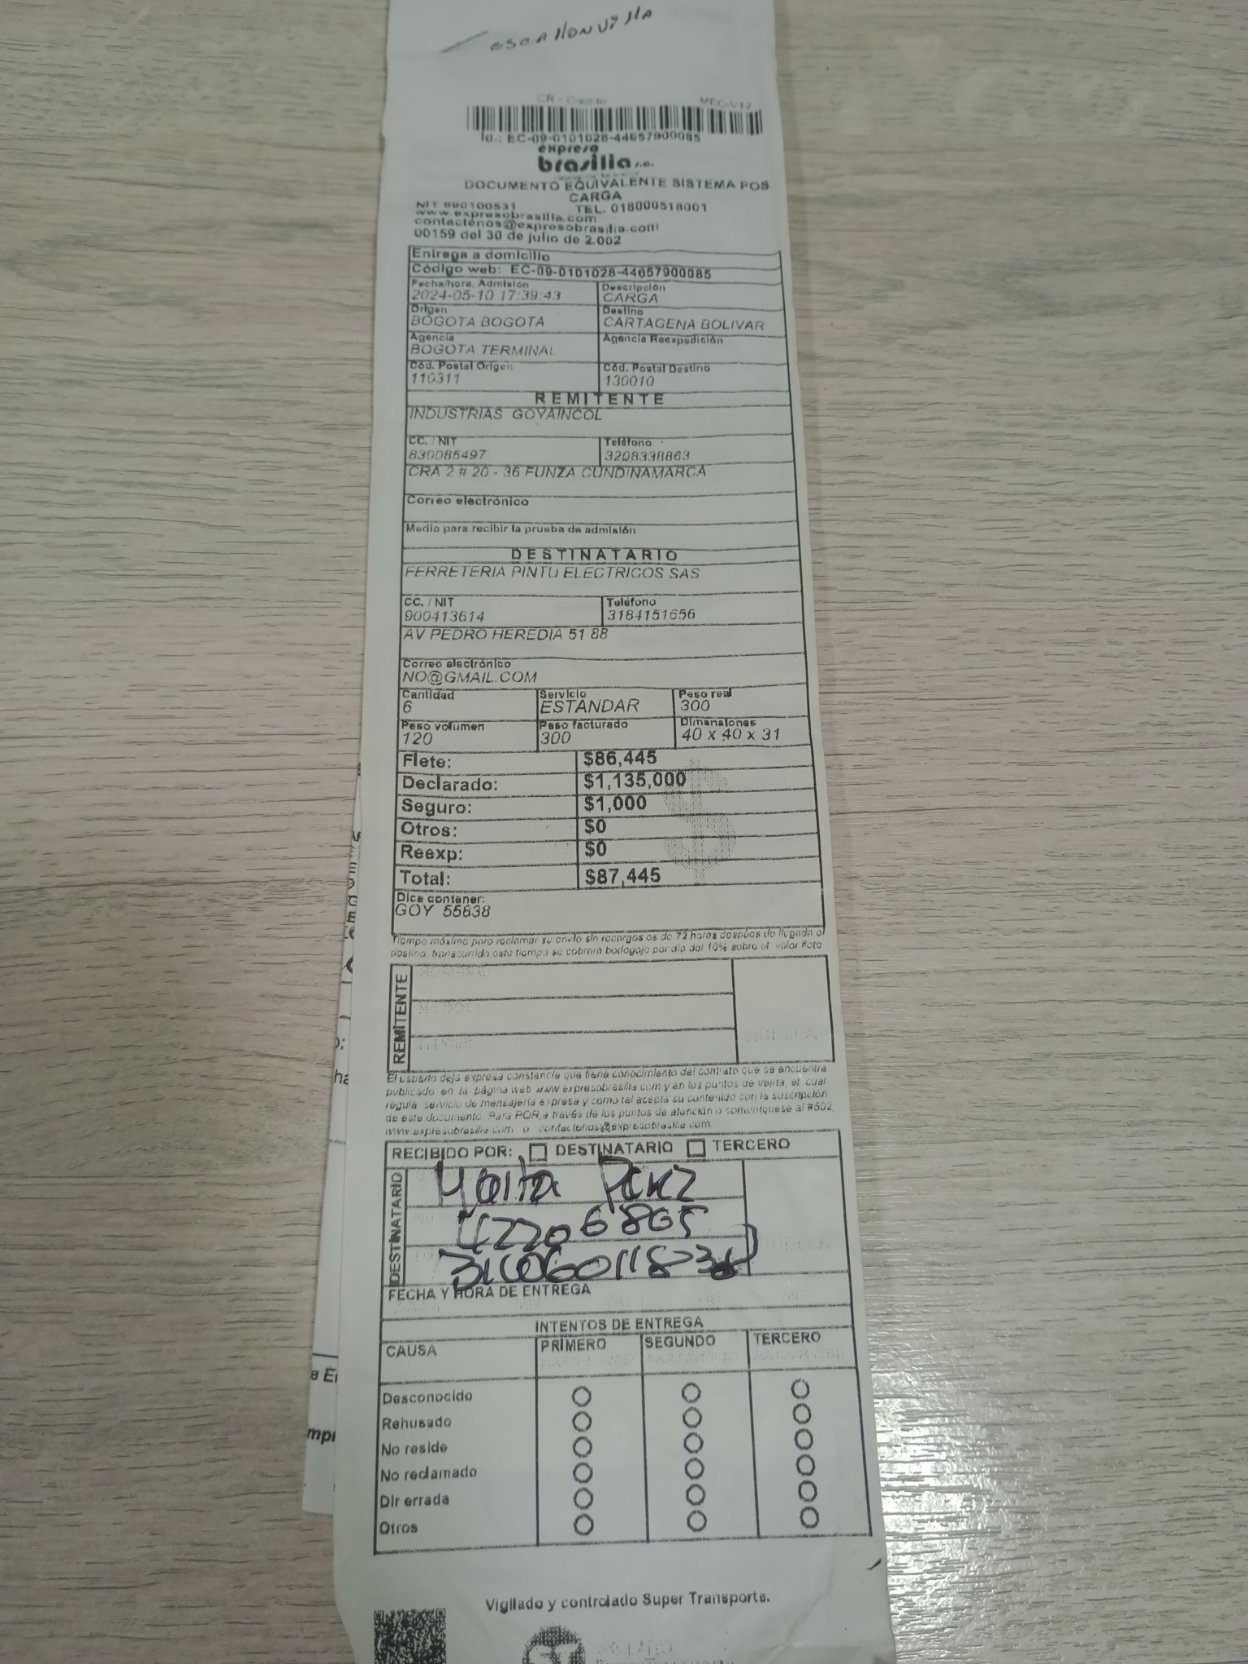 escallonvilla
CR - Credito MEC-V12
Id.: EC-09-0101028-44657900085
expreso
brasilia s.a.
DOCUMENTO EQUIVALENTE SISTEMA POS
CARGA
NIT 890100531 TEL. 018000518001
www.expresobrasilia.com
contactenos@expresobrasilia.com
00159 del 30 de julio de 2.002
Entrega a domicilio
Código web: EC-09-0101028-44657900085
Fecha/hora. Admisión Descripción
2024-05-10 17:39:43 CARGA
Origen Destino
BOGOTA BOGOTA CARTAGENA BOLIVAR
Agencia Agencia Reexpedición
BOGOTA TERMINAL
Cód. Postal Origen Cód. Postal Destino
110311 130010
REMITENTE
INDUSTRIAS GOYAINCOL
CC. / NIT Teléfono
830085497 3208338863
CRA 2 # 20 - 36 FUNZA CUNDINAMARCA
Correo electrónico
Medio para recibir la prueba de admisión
DESTINATARIO
FERRETERIA PINTU ELECTRICOS SAS
CC. / NIT Teléfono
900413614 3184151656
AV PEDRO HEREDIA 51 88
Correo electrónico
NO@GMAIL.COM
Cantidad Servicio Peso real
6 ESTANDAR 300
Peso volumen Peso facturado Dimensiones
120 300 40 x 40 x 31
Flete: $86,445
Declarado: $1,135,000
Seguro: $1,000
Otros: $0
Reexp: $0
Total: $87,445
Dice contener:
GOY 55838
Tiempo máximo para reclamar su envío sin recargos es de 72 horas después de llegada al
destino, transcurrido este tiempo se cobrará bodegaje por día del 10% sobre el valor flete
REMITENTE
El usuario deja expresa constancia que tiene conocimiento del contrato que se encuentra
publicado en la página web www.expresobrasilia.com y en los puntos de venta, el cual
regula servicio de mensajería expresa y como tal acepta su contenido con la suscripción
de este documento. Para PQR a través de los puntos de atención o comuníquese al #502
www.expresobrasilia.com o contactenos@expresobrasilia.com
RECIBIDO POR: DESTINATARIO TERCERO
DESTINATARIO
Perez
42206865
FECHA Y HORA DE ENTREGA
INTENTOS DE ENTREGA
CAUSA PRIMERO SEGUNDO TERCERO
Desconocido
Rehusado
No reside
No reclamado
Dir errada
Otros
Vigilado y controlado Super Transporte.